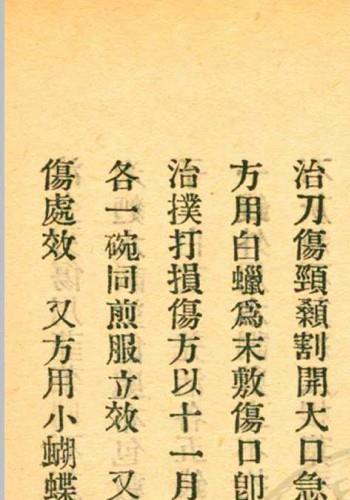 治刀傷頸顙割開大口急
方用白蠟爲末敷傷口卽
治撲打損傷方以十一月
各一碗同煎服立效　又
傷處效　又方用小蝴蝶